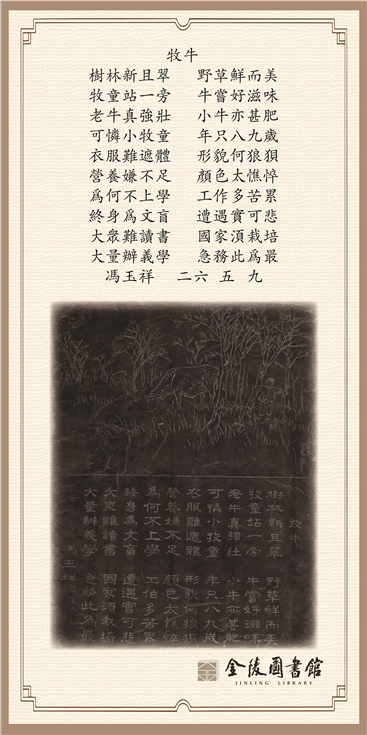 牧牛
樹林新且翠 野草鮮而美
牧童站一旁 牛嘗好滋味
老牛真強壯 小牛亦甚肥
可憐小牧童 年只八九歲
衣服難遮體 形貌何狼狽
營養嫌不足 顏色太憔悴
爲何不上學 工作多苦累
終身爲文盲 遭遇實可悲
大衆難讀書 國家須栽培
大量辦義學 急務此爲最
馮玉祥 二六 五 九
牧牛
樹林新且翠 野草鮮而美
牧童站一旁 牛嘗好滋味
老牛真強壯 小牛亦甚肥
可憐小牧童 年只八九歲
衣服難遮體 形貌何狼狽
營養嫌不足 顏色太憔悴
爲何不上學 工作多苦累
終身爲文盲 遭遇實可悲
大衆難讀書 國家須栽培
大量辦義學 急務此爲最
馮玉祥
金陵圖書館
JINLING LIBRARY